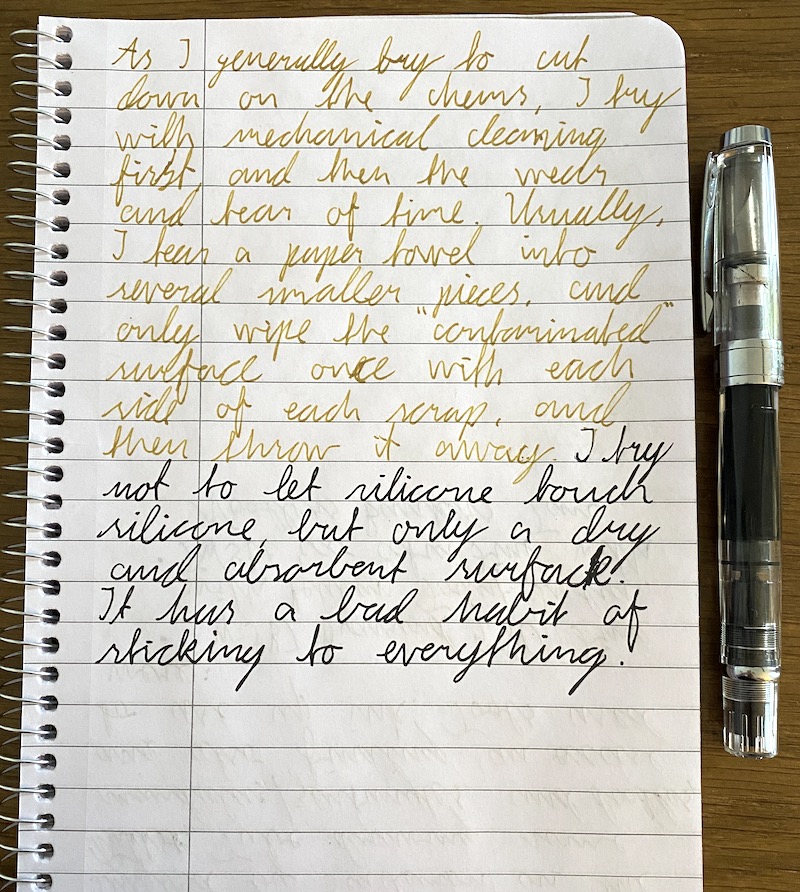 As I generally try to cut
down on the chems, I try
with mechanical cleaning
first, and then the wear
and tear of time. Usually,
I tear a paper towel into
several smaller pieces, and
only wipe the "contaminated"
surface once with each
side of each scrap, and
then throw it away. I try
not to let silicone touch
silicone, but only a dry
and absorbent surface.
It has a bad habit of
sticking to everything!